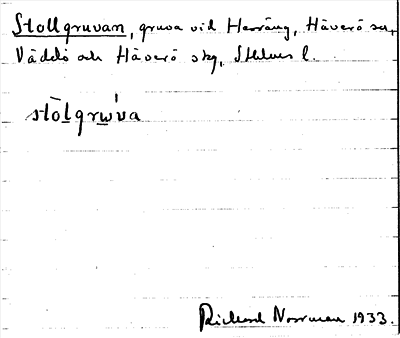 Stollgruvan, gruva vid Herräng, Häverö sn,
Väddö och Häverö skg, Sthlms l.
stòlgrẃva
Rickard Norrman 1933.